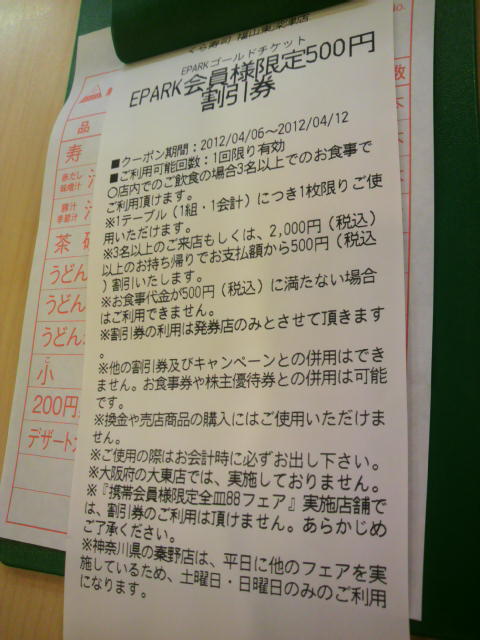 くら寿司 福山東深津店
EPARKゴールドチケット
EPARK会員様限定500円
割引券
■クーポン期間：2012/04/06～2012/04/12
■ご利用可能回数：1回限り有効
○店内でのご飲食の場合3名以上でのお食事で
ご利用頂けます。
※1テーブル（1組・1会計）につき1枚限りご使
用いただけます。
※3名以上のご来店もしくは、2,000円（税込）
以上のお持ち帰りでお支払額から500円（税込
）割引いたします。
※お食事代金が500円（税込）に満たない場合
はご利用できません。
※割引券の利用は発券店のみとさせて頂きます
。
※他の割引券及びキャンペーンとの併用はでき
ません。お食事券や株主優待券との併用は可能
です。
※換金や売店商品の購入にはご使用いただけま
せん。
※ご使用の際はお会計時に必ずお出し下さい。
※大阪府の大東店では、実施しておりません。
※『携帯会員様限定全皿88フェア』実施店舗で
は、割引券のご利用は頂けません。あらかじめ
ご了承ください。
※神奈川県の秦野店は、平日に他のフェアを実
施しているため、土曜日・日曜日のみのご利用
になります。
品
寿
赤だし
味噌汁
豚汁
季節汁
茶碗
うどん
うどん
うどん
小
200円
デザート
No.
数
本